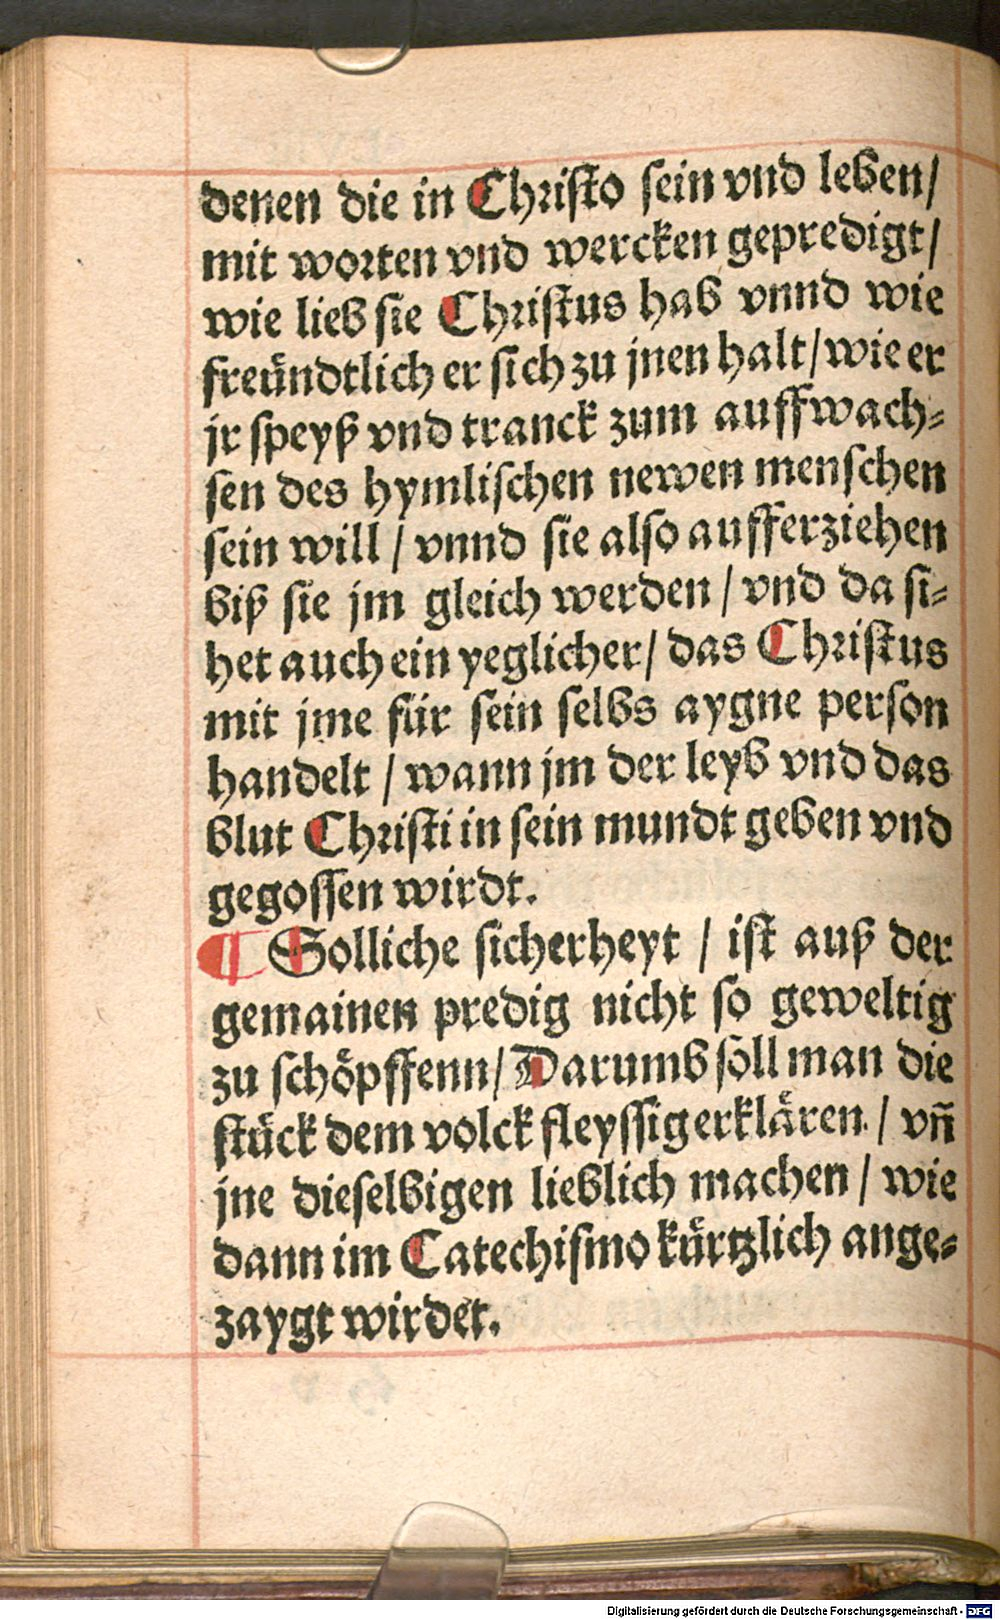 denen die in Christo sein vnd leben/
mit worten vnd wercken gepredigt/
wie lieb sie Christus hab vnnd wie
freündtlich er sich zu jnen halt/wie er
jr speyß vnd tranck zum auffwach-
sen des hymlischen newen menschen
sein will / vnnd sie also aufferziehen
biß sie jm gleich werden / vnd da si-
het auch ein yeglicher/ das Christus
mit jme für sein selbs aygne person
handelt / wann jm der leyb vnd das
blut Christi in sein mundt geben vnd
gegossen wirdt.
¶ Solliche sicherheyt / ist auß der
gemainen predig nicht so geweltig
zu schöpffenn/ Darumb soll man die
stück dem volck fleyssig erklären / vñ
jne dieselbigen lieblich machen / wie
dann im Catechismo kürtzlich ange-
zaygt wirdet.
Digitalisierung gefördert durch die Deutsche Forschungsgemeinschaft - DFG